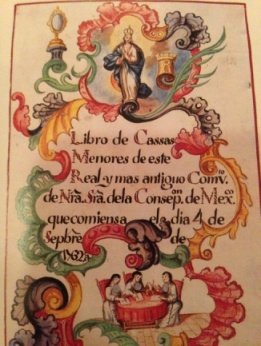 Libro de Cassas
Menores de este
Real y mas antiguo Comv.to
de Nrâ. Srâ. dela Consepn. de Mexco.
que comiensa ela dia 4 de
Sepbrê de